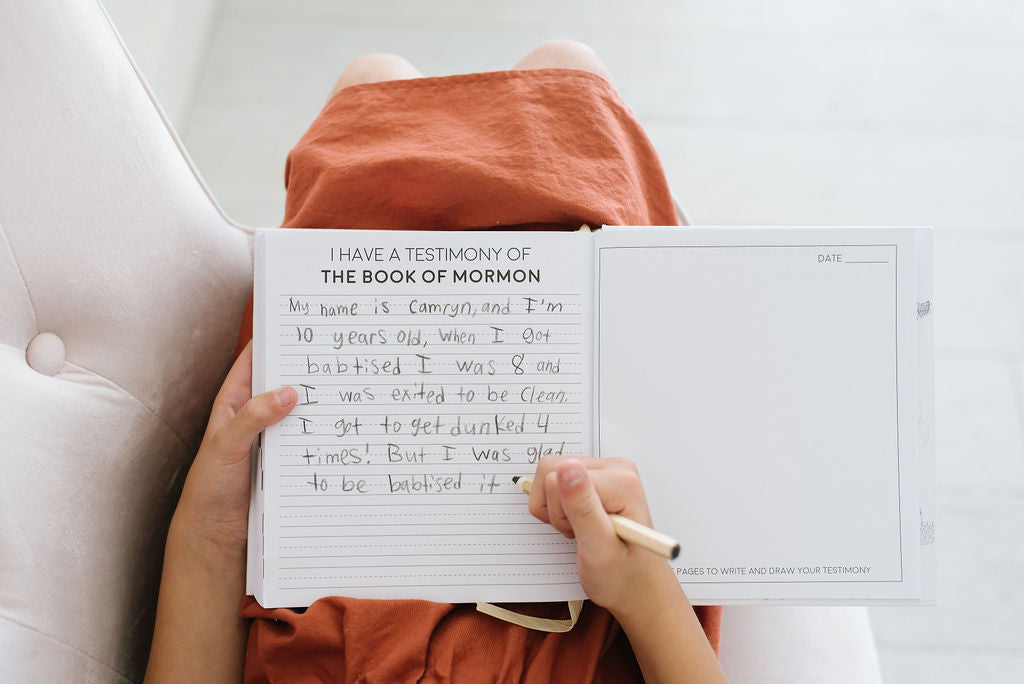 I HAVE A TESTIMONY OF
THE BOOK OF MORMON
My name is Camryn, and I'm
10 years old, when I got
babtised I was 8 and
I was exited to be clean.
I got to get dunked 4
times! But I was glad
to be babtised it
DATE
PAGES TO WRITE AND DRAW YOUR TESTIMONY